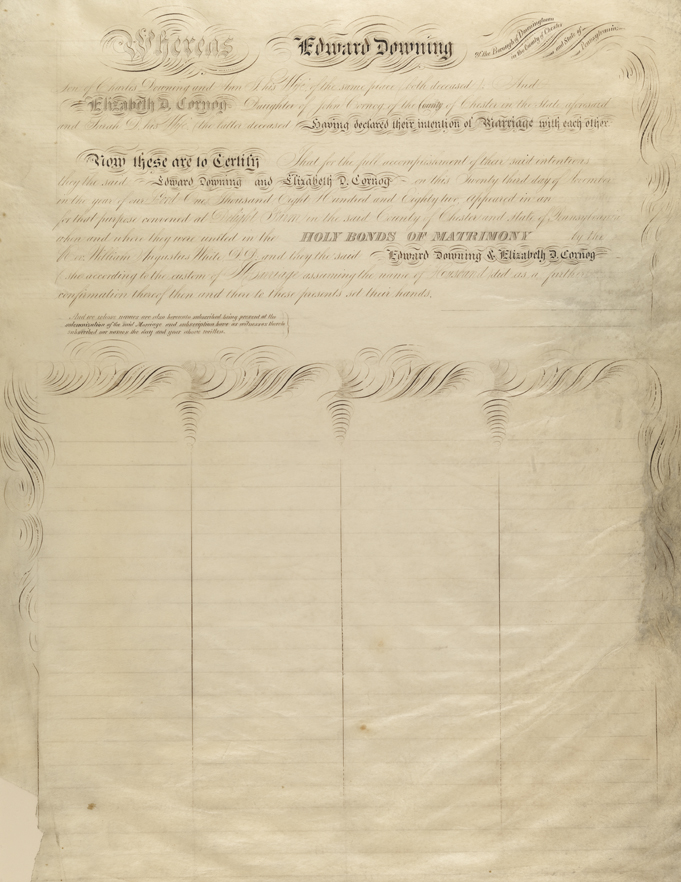 Whereas Edward Downing of the Borough of Downingtown
in the County of Chester
and State of Pennsylvania
Son of Charles Downing and his Wife of the same place both deceased And
Elizabeth D. Cornog Daughter of John Cornog of the County of Chester in the State aforesaid
and Sarah D his Wife the latter deceased Having declared their intention of Marriage with each other
Now these are to Certify That for the full accomplishment of their said intentions
they the said Edward Downing and Elizabeth D. Cornog on this Twenty third day of November
in the year of our Lord One Thousand Eight Hundred and Eighty two, Appeared in an
for that purpose convened at in the said County of Chester and State of Pennsylvania
when and where they were united in the HOLY BONDS OF MATRIMONY by the
Rev. William Augustus White D.D. and they the said Edward Downing & Elizabeth D. Cornog
she according to the custom of Marriage assuming the name of Husband did as a further
confirmation thereof then and there to these presents set their hands.
And we whose names are also hereunto subscribed being present at the
solemnization of the said Marriage and subscription have as witnesses thereto
subscribed our names the day and year above written.